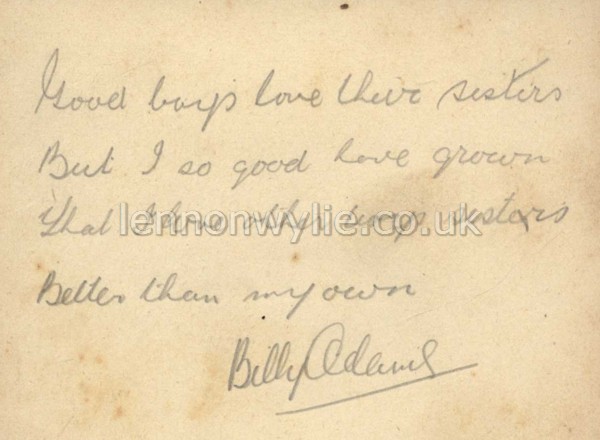 Good boys love their sisters
But I so good have grown
That I love other boys sisters
lennonwylie.co.uk
Better than my own
Billy Adams